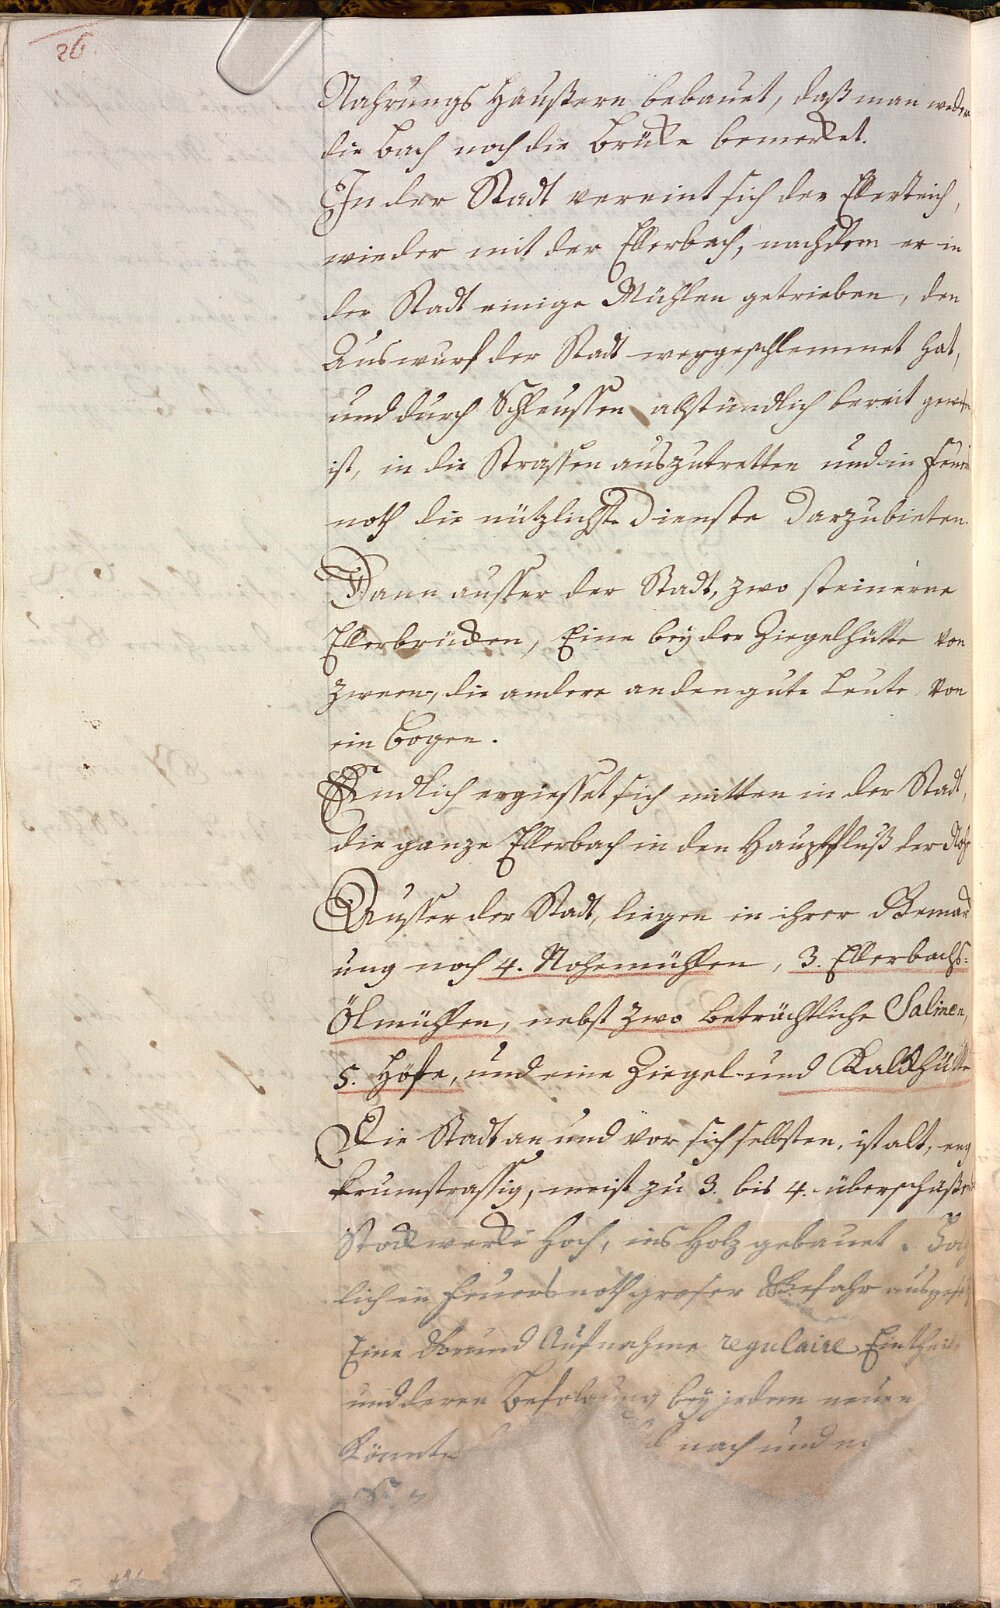 26.
Nahrungs Häußern bebauet, daß man weder
die Bach noch die Brüke bemerket.
In der Stadt vereint sich der Ellerteich,
wieder mit der Ellerbach, nachdem er in
der Stadt einige Mühlen getrieben, den
Auswurf der Stadt weggeschlemmet hat,
und durch Schleussen allstündlich bereit
ist, in die Strassen auszutretten und in
noth die nützlichste Dienste darzubieten.
Dann ausser der Stadt, zwo steinerne
Ellerbrücken, Eine bey der Ziegelhütte von
zween, die andere an den gute Leute von
ein Bogen.
Endlich ergiesset sich mitten in der Stadt,
die ganze Ellerbach in den Hauptfluß der
Ausser der Stadt, liegen in ihrer Gemark
ung noch 4. Nohemühlen, 3. Ellerbachs-
Ölmühlen, nebst zwo beträchtliche Salinen,
5. Höfe, und eine Ziegel und Kalkhütte
Die Stadt an und vor sich selbsten, ist alt, eng
krumstrassig, meist zu 3. bis 4.
Stockwerke hoch, ins Holz gebauet.
lich in Feuersnoth groser Gefahr
Eine Grund Aufnahme regulaire
und deren Befolgung bey jedem neuen
könnte nach und